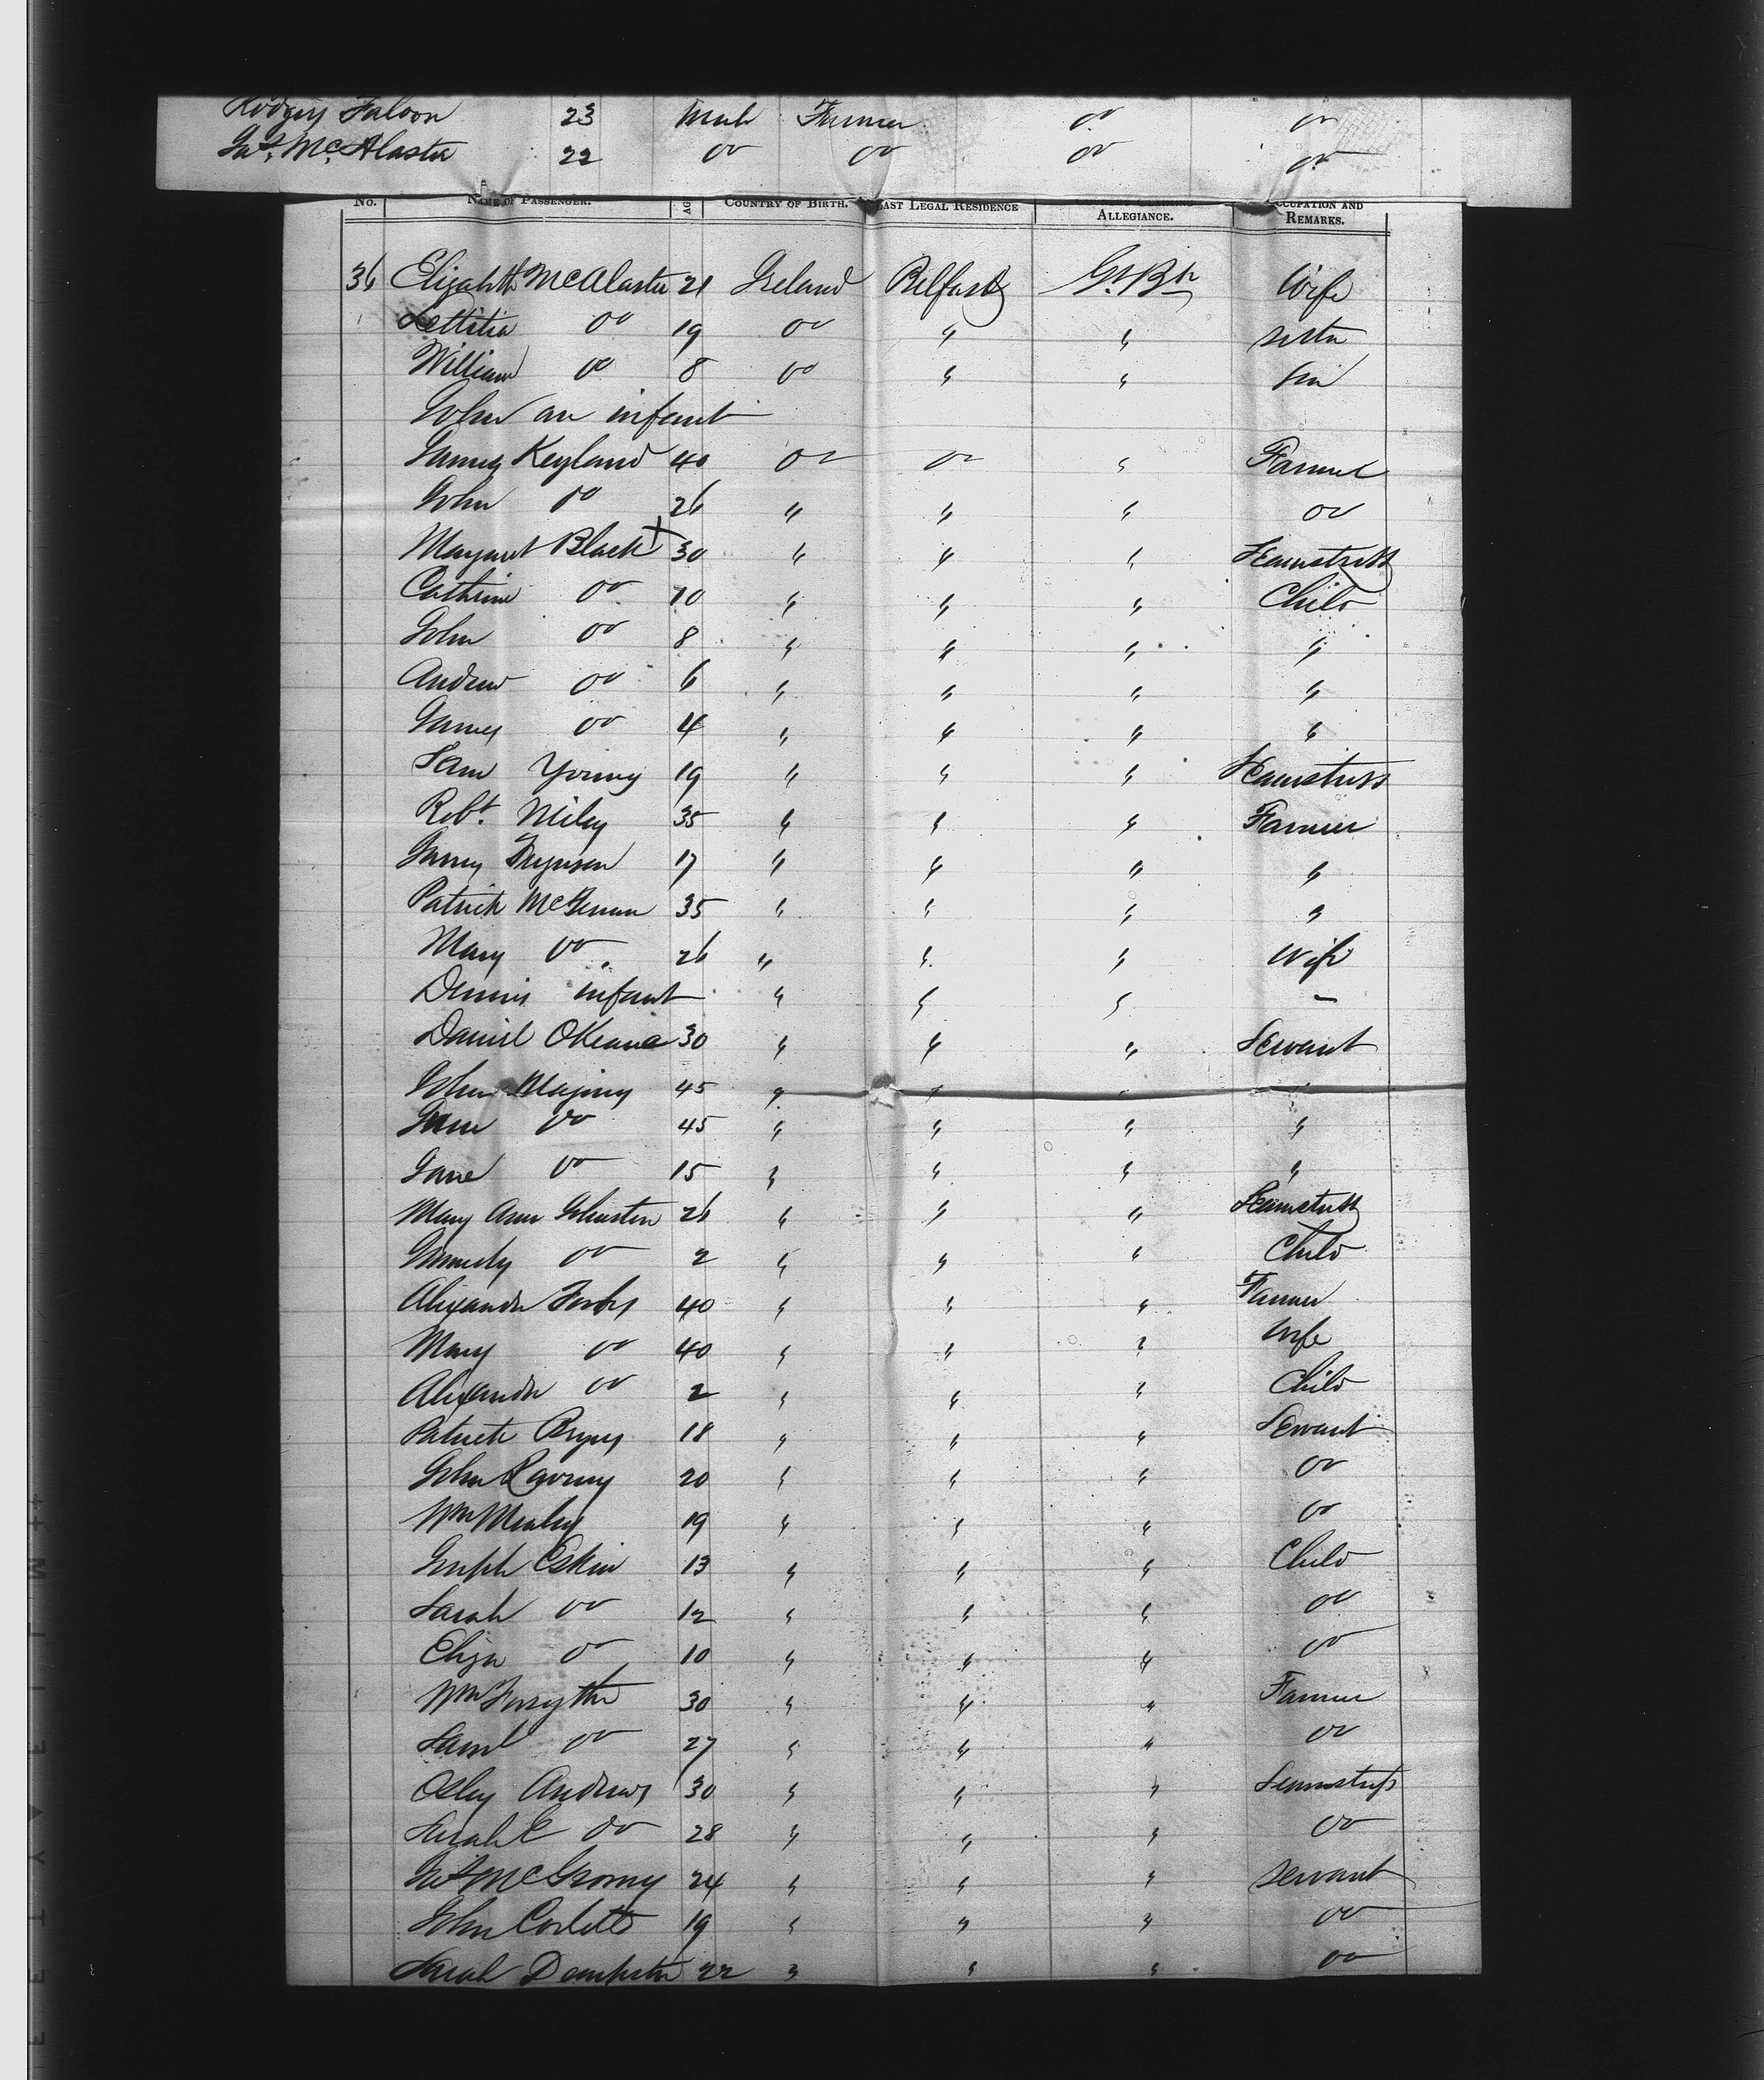 Rodgers Faloon 23 Male Farmer do do
Jas. McAlaster 22 do do do do
No. Name of Passenger. Ag Country of Birth. Last Legal Residence Allegiance. Occupation and Remarks.
36 Elizabeth McAlaster 21 Ireland Belfast Gt. Bn Wife
Lettitia do 19 do " " sister
William do 8 do " " son
John an infant
James Keyland 40 do do " Farmer
John do 26 " " " do
Margaret Black x 30 " " " Seamstress
Cathrine do 10 " " " Child
John do 8 " " " "
Andrew do 6 " " " "
James do 4 " " " "
Young 19 " " " Seamstress
Robt. Miley 35 " " " Farmer
James Ferguson 17 " " " "
Patrick 35 " " " "
Mary do 26 " " " Wife
Dennis infant " " " -
Daniel OKeane 30 " " " Servant
John 45 " " " "
Jane do 45 " " " "
Jane do 15 " " " "
Mary Ann Johnston 26 " " " Seamstress
do 2 " " " Child
Alexander Forbes 40 " " " Farmer
Mary do 40 " " " Wife
Alexander do 2 " " " Child
18 " " " Servant
John 20 " " " do
Wm 19 " " " do
Joseph Eskin 13 " " " Child
Sarah do 12 " " " do
Eliza do 10 " " " do
Wm Forsythe 30 " " " Farmer
Saml do 27 " " " do
Andrews 30 " " " Seamstress
Sarah E do 28 " " " do
24 " " " servant
John Corlett 19 " " " do
Sarah Dempster 22 " " " do